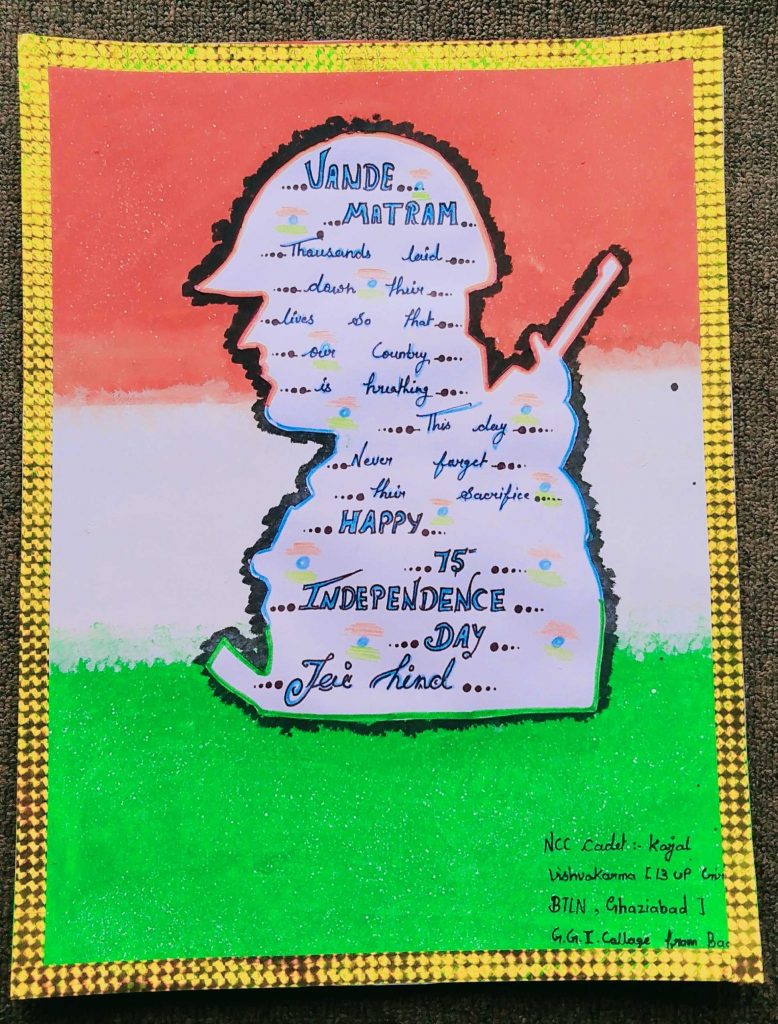 VANDE
MATRAM
Thousands laid
down their
lives so that
our Country
is breathing
This day
Never farget
their sacrifice
HAPPY
75
INDEPENDENCE
DAY
Jai hind
NCC Cadet:- Kajal
Vishvakarma [13 UP
BTLN, Ghaziabad]
G.G.I. Callage from